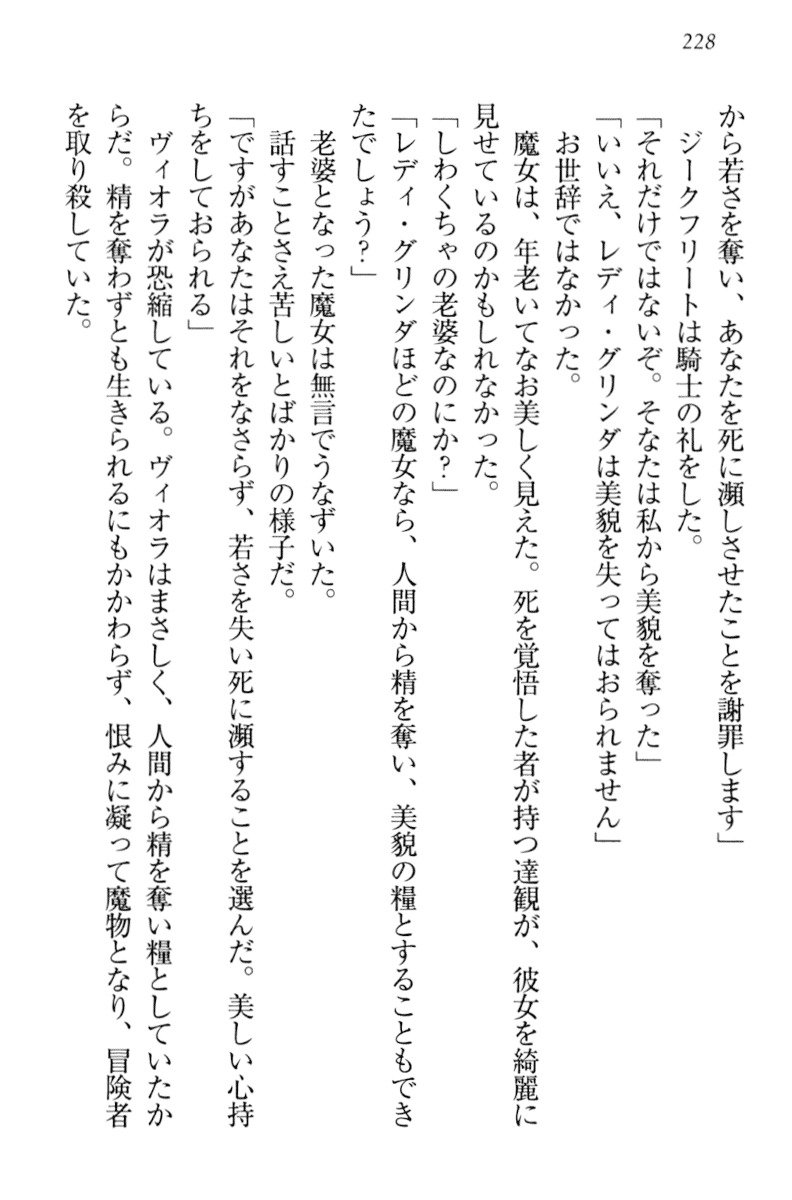 228
から若さを奪い、あなたを死に瀕しさせたことを謝罪します」
　ジークフリートは騎士の礼をした。
「それだけではないぞ。そなたは私から美貌を奪った」
「いいえ、レディ・グリンダは美貌を失ってはおられません」
　お世辞ではなかった。
　魔女は、年老いてなお美しく見えた。死を覚悟した者が持つ達観が、彼女を綺麗に
見せているのかもしれなかった。
「しわくちゃの老婆なのにか？」
「レディ・グリンダほどの魔女なら、人間から精を奪い、美貌の糧とすることもでき
たでしょう？」
　老婆となった魔女は無言でうなずいた。
　話すことさえ苦しいとばかりの様子だ。
「ですがあなたはそれをなさらず、若さを失い死に瀕することを選んだ。美しい心持
ちをしておられる」
　ヴィオラが恐縮している。ヴィオラはまさしく、人間から精を奪い糧としていたか
らだ。精を奪わずとも生きられるにもかかわらず、恨みに凝って魔物となり、冒険者
を取り殺していた。